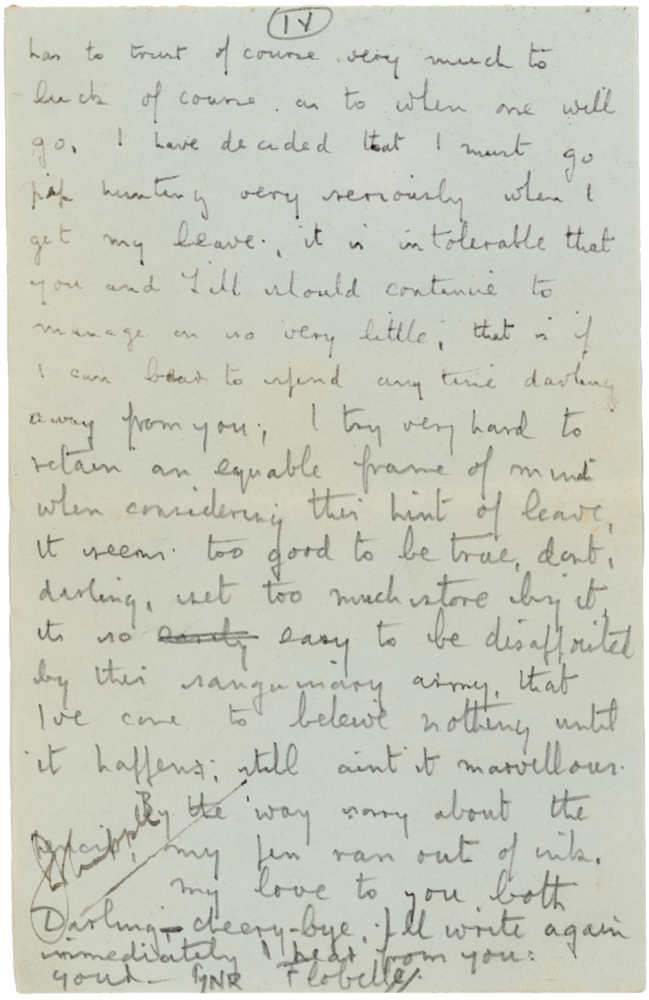 IV
has to trust of course very much to
luck of course. as to when one will
go. I have decided that I must go
pip hunting very seriously when I
get my leave., it is intolerable that
you and Jill should continue to
manage on so very little; that is if
I can bear to spend any time darling
away from you., I try very hard to
retain an equable frame of mind
when considering this hint of leave,
it seems. too good to be true, dont,
darling, set too much store by it,
its so easy to be disappointed
by this sanguinary army, that
I've come to beleive nothing until
it happens; still aint it marvellous.
By the way sorry about the
pencil, my pen ran out of ink.
my love to you both
Darling - cheery-bye, I'll write again
immediately I hear from you:
yours - GNR